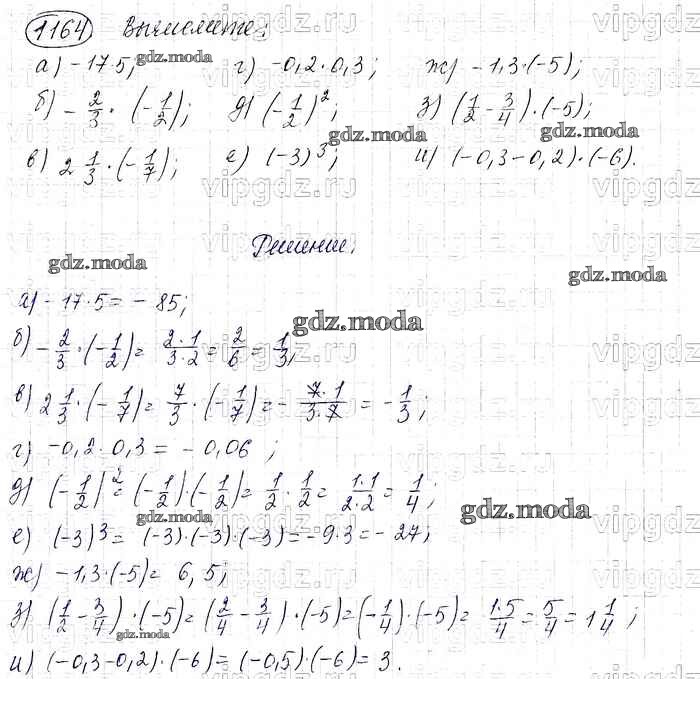 1164 Вычислите:
а) -17·5; г) -0,2·0,3; ж) -1,3·(-5);
б) -2/3·(-1/2); д) (-1/2)²; з) (1/2-3/4)·(-5);
в) 2 1/3·(-1/7); е) (-3)³; и) (-0,3-0,2)·(-6).
Решение.
а) -17·5 = -85;
б) -2/3·(-1/2) = 2·1/3·2 = 2/6 = 1/3;
в) 2 1/3·(-1/7) = 7/3·(-1/7) = -7·1/3·7 = -1/3;
г) -0,2·0,3 = -0,06;
д) (-1/2)² = (-1/2)·(-1/2) = 1/2·1/2 = 1·1/2·2 = 1/4;
е) (-3)³ = (-3)·(-3)·(-3) = -9·3 = -27;
ж) -1,3·(-5) = 6,5;
з) (1/2-3/4)·(-5) = (2/4-3/4)·(-5) = (-1/4)·(-5) = 1·5/4 = 5/4 = 1 1/4;
и) (-0,3-0,2)·(-6) = (-0,5)·(-6) = 3.
gdz.moda
vipgdz.ru